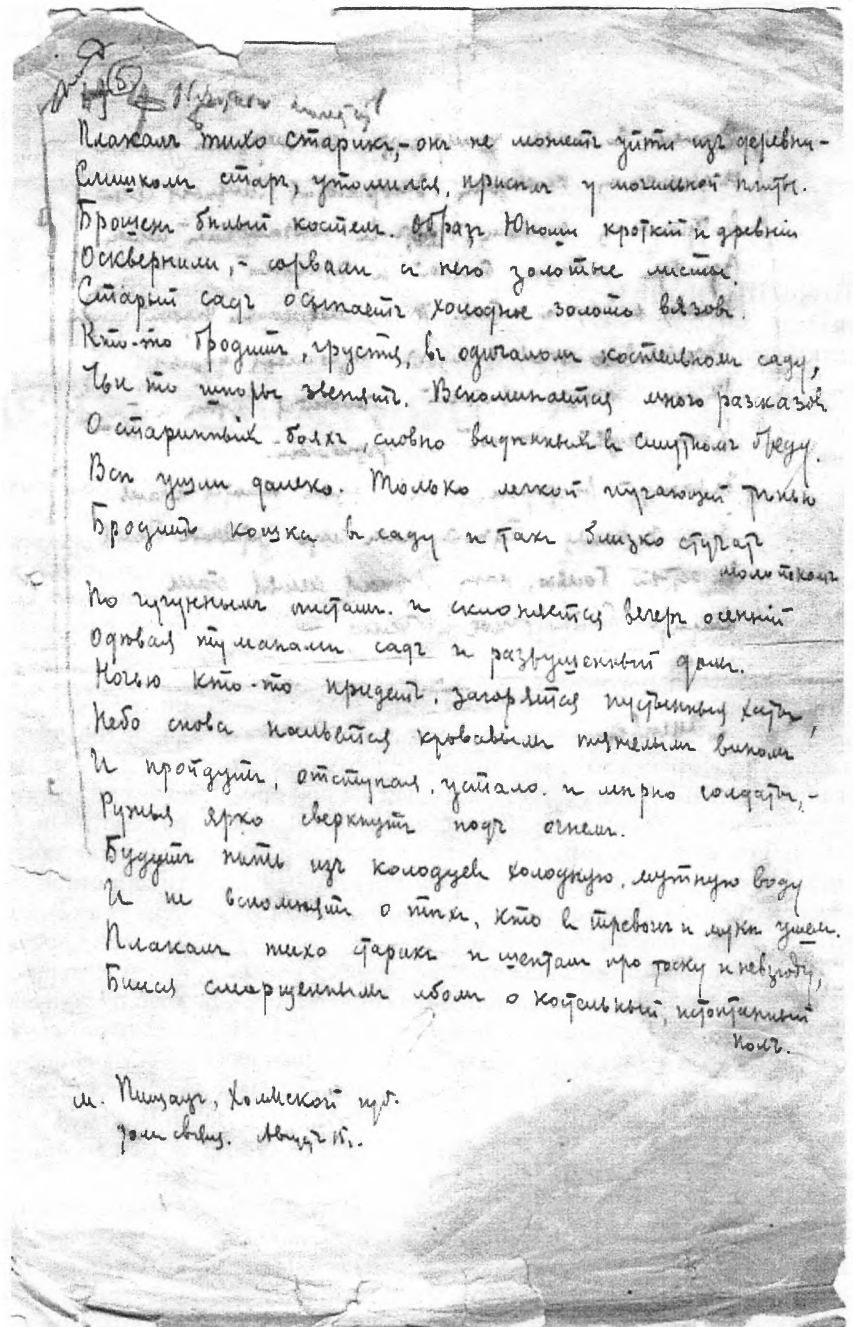 Плакалъ тихо старикъ,- онъ не можетъ уйти изъ деревни -
Слишкомъ старъ, утомился, приспѣлъ у могильной плиты.
Брошенъ бѣлый костелъ. Образъ Юноши кроткій и древній
Осквернили, - сорвали съ него золотые листы.
Старый садъ осыпаетъ холодное золото вязовъ.
Кто-то бродитъ, грустя, въ одичаломъ костельномъ саду,
Чьи то шпоры звенятъ. Вспоминается много разсказовъ
О старинныхъ бояхъ, словно видѣнныхъ въ смутномъ бреду.
Всѣ ушли далеко. Только легкой пугающей тѣнью
Бродитъ кошка въ саду и такъ близко стучатъ
молоткомъ
По чугуннымъ листамъ. и склоняется вечеръ осенній
Одѣвая туманами садъ и разрушенный домъ.
Ночью кто-то придетъ. Загорятся пустынныя хаты,
Небо снова нальется кровавымъ тяжелымъ виномъ
И пройдутъ, отступая, устало и мѣрно солдаты,-
Ружья ярко сверкнутъ подъ огнемъ.
Будутъ пить изъ колодцевъ холодную, мутную воду
И не вспомнятъ о тѣхъ, кто въ тревогѣ и мукѣ ушелъ.
Плакалъ тихо старикъ и шепталъ про тоску и невзгоду,
Бился сморщеннымъ лбомъ о костельный, истоптанный
полъ.
м. Пищацъ, Холмской губ.
Августъ 15.